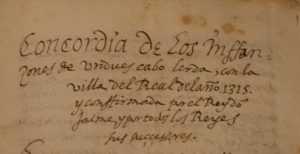 Concordia de los Inffan-
zones de vndues cabo lerda, con la
villa del Real del año, 1315.
y conffirmada por el Rey dō
Jaime, y por todos los Reyes
sus successores.